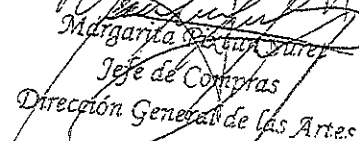 Margarita
Jefe de Compras
Dirección General de las Artes